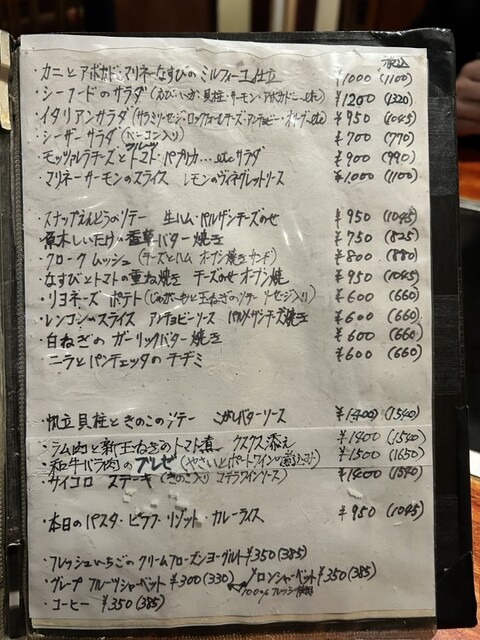 税込
・カニとアボカド、マリネーなすびの ミルフィーユ仕立 ¥1000 (1100)
・シーフードのサラダ (えび・いか 貝柱・サーモン・アボカド…etc) ¥1200 (1320)
・イタリアンサラダ (サラミ・ソーセージ・ロックフォールチーズ・アンチョビー・オリーブ…etc) ¥950 (1045)
・シーザーサラダ (ベーコン入り) ¥700 (770)
・モッツァレラチーズとフルーツトマト・パプリカ…etcサラダ ¥900 (990)
・マリネーサーモンのスライス レモンのヴィネグレットソース ¥1,000 (1100)
・スナップえんどうのソテー 生ハム・パルメザンチーズのせ ¥950 (1045)
・原木しいたけの香草バター焼き ¥750 (825)
・クローク ムッシュ (チーズとハム オーブン焼きサンド) ¥800 (880)
・なすびとトマトの重ね焼き チーズのせオーブン焼 ¥950 (1045)
・リヨネーズ ポテト (じゃがいもと玉ねぎのソテー ソーセージ入り) ¥600 (660)
・レンコンのスライス アンチョビーソース パルメザンチーズ焼き ¥600 (660)
・白ねぎの ガーリックバター焼き ¥600 (660)
・ニラとパンチェッタのチヂミ ¥600 (660)
・帆立貝柱ときのこのソテー こがしバターソース ¥1400 (1540)
・ラム肉と新玉ねぎのトマト煮 クスクス添え ¥1400 (1540)
・和牛バラ肉のブレゼ (やさいとポートワインの) ¥1500 (1650)
サイコロ ステーキ (きのこ入り マデラワインソース) ¥1400 (1540)
・本日のパスタ・ピラフ・リゾット・カレーライス ¥950 (1045)
・フレッシュいちごのクリームフローズンヨーグルト ¥350 (385)
・グレープフルーツシャーベット ¥300 (330) メロンシャーベット ¥350 (385)
100%フレッシュ使用
・コーヒー ¥350 (385)